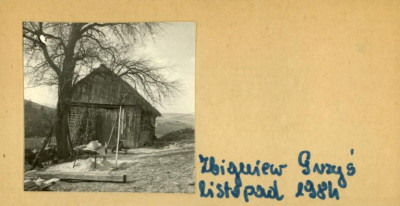 Zbigniew Gryś
listopad 1984